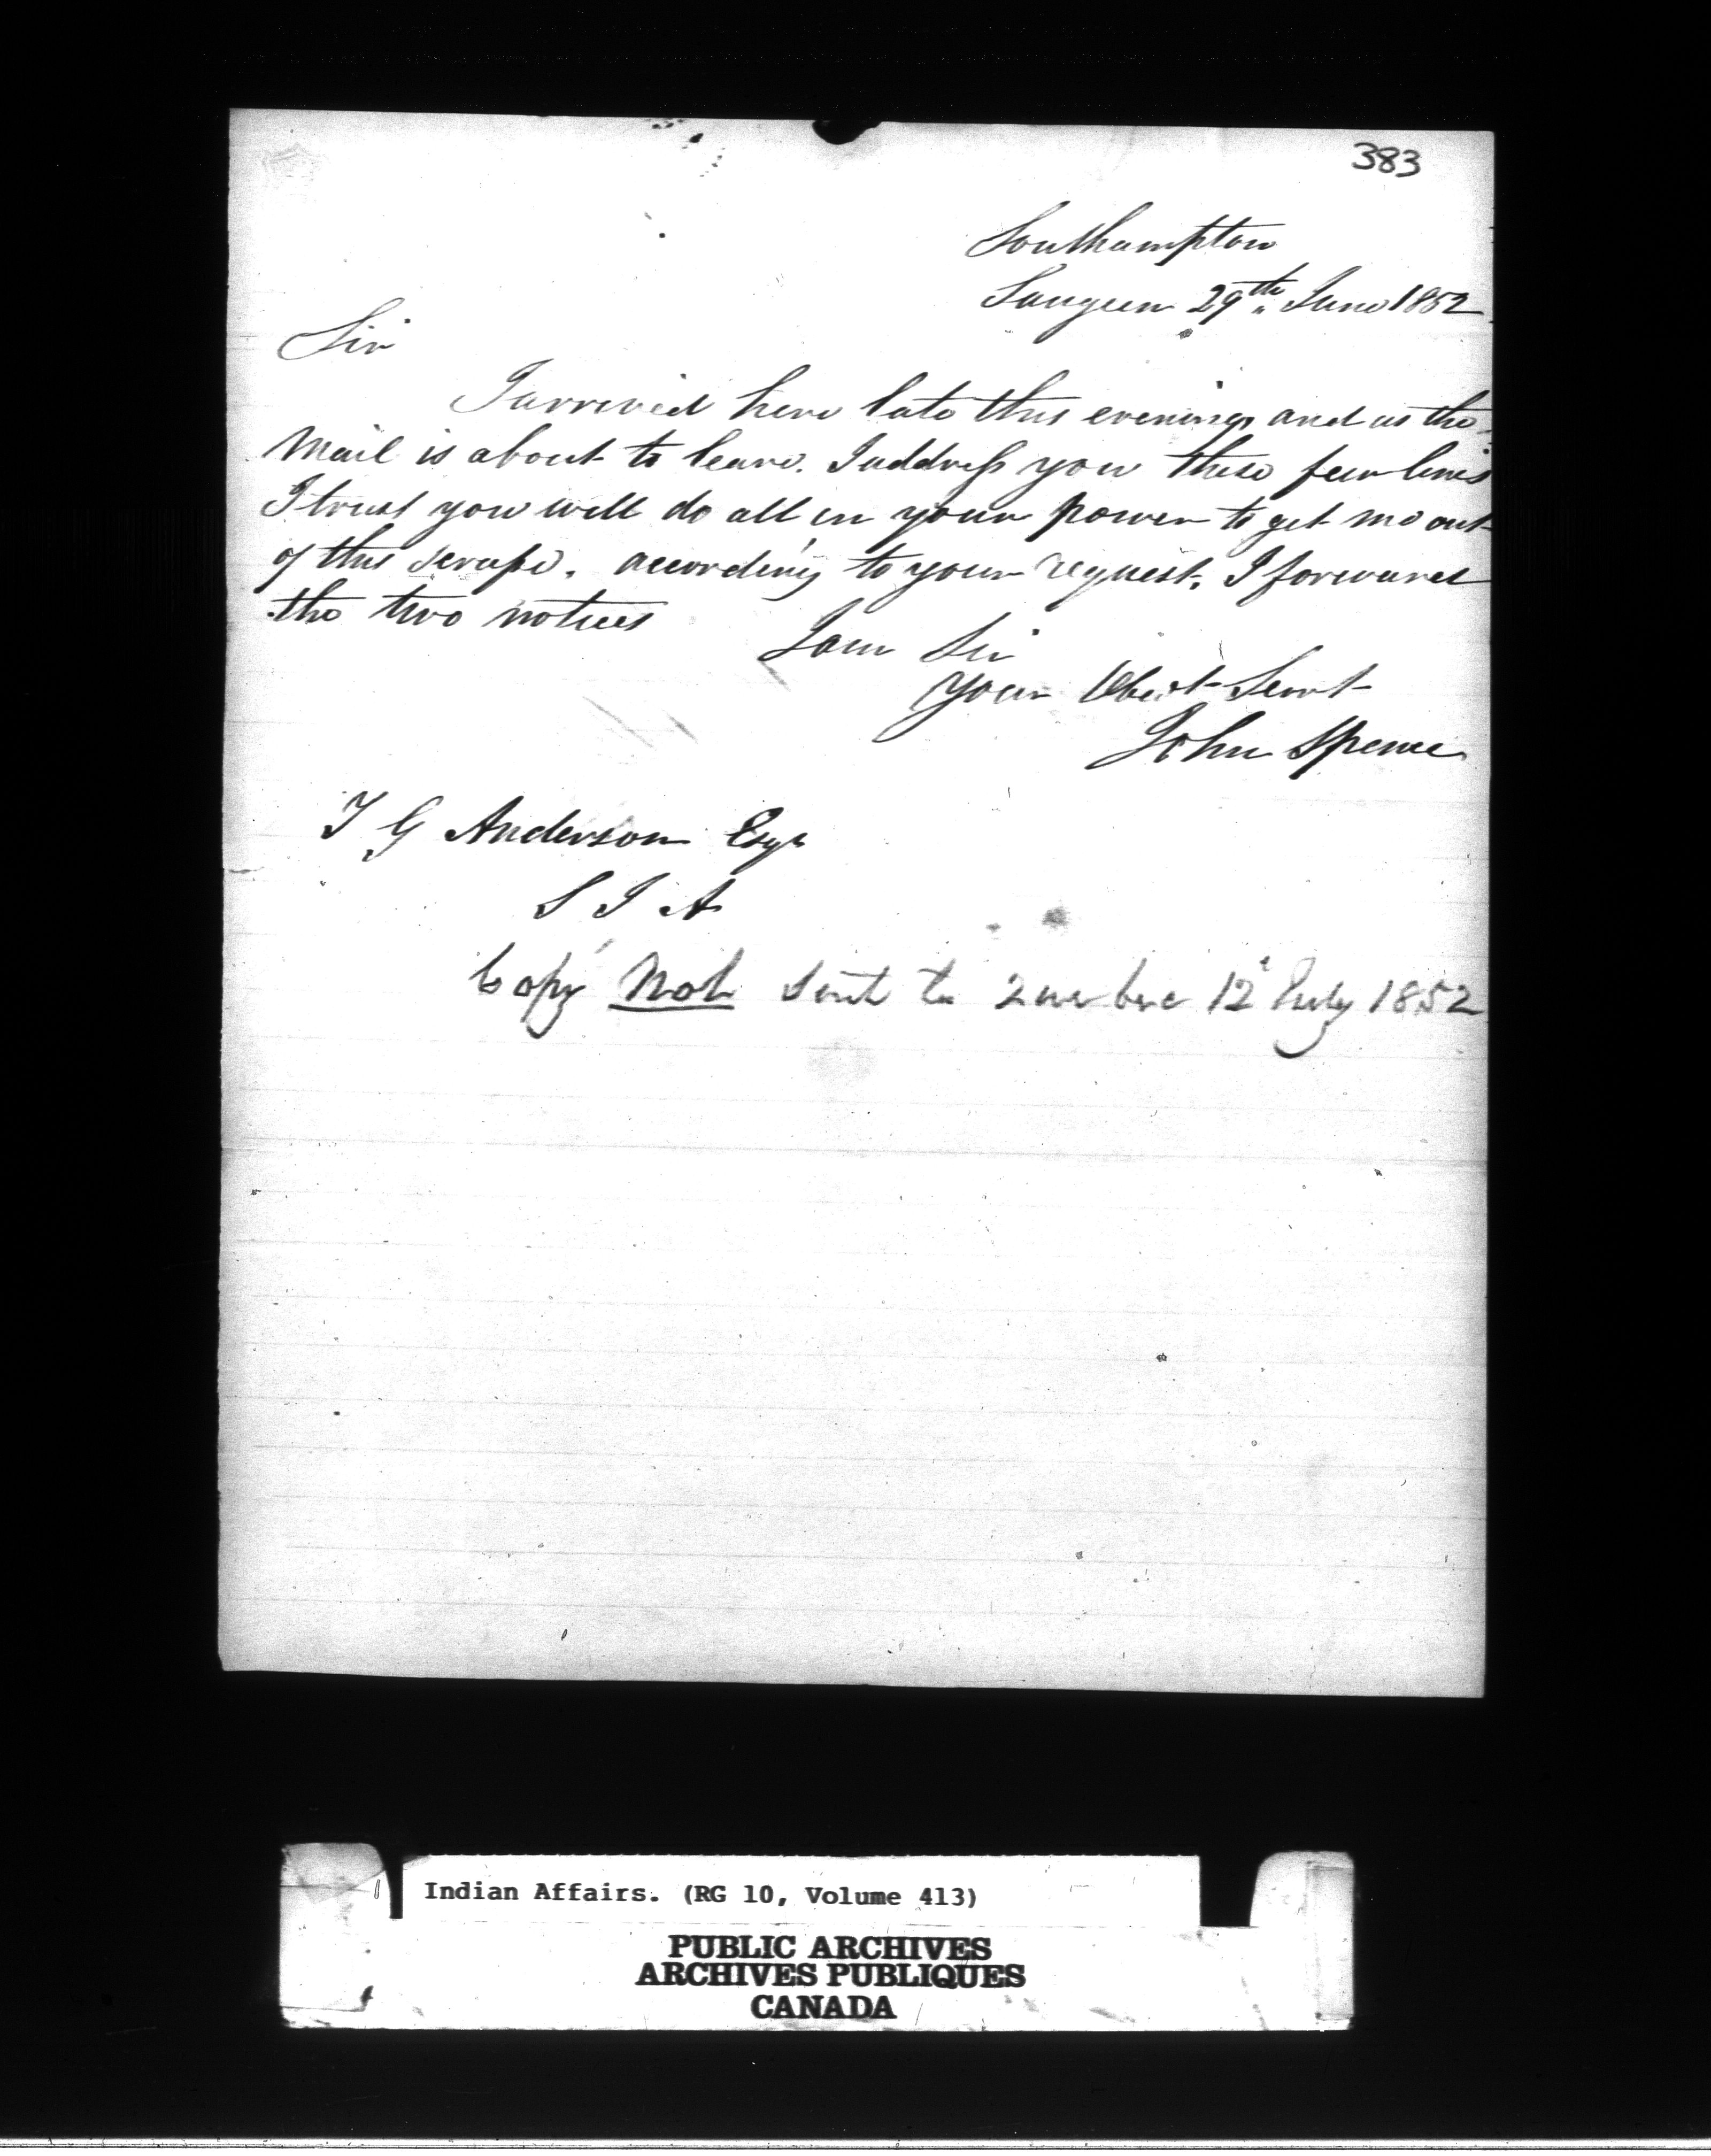 383
Southampton
Saugeen 29th June 1852
Sir
I arrived here late this evening and as the
Mail is about to leave. I address you these few lines
I trust you will do all in your power to get me out
of this scrape. according to your request. I forward
the two notices
I am Sir
Your Obedt Servt
John Spence
T G Anderson Esqr
S I A
Copy Not Sent to Quebec 12 July 1852
Indian Affairs. (RG 10, Volume 413)
PUBLIC ARCHIVES
ARCHIVES PUBLIQUES
CANADA